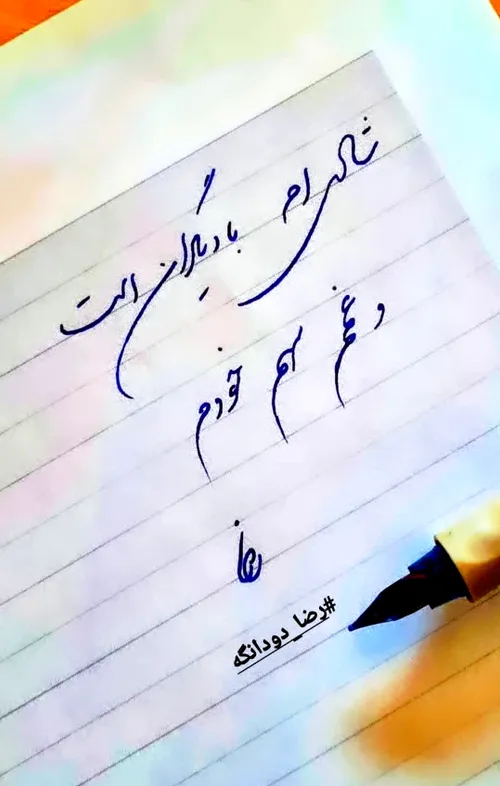 شادی ام با دیگران است
و غمم سهم خودم
رضا
#رضا_دودانگه